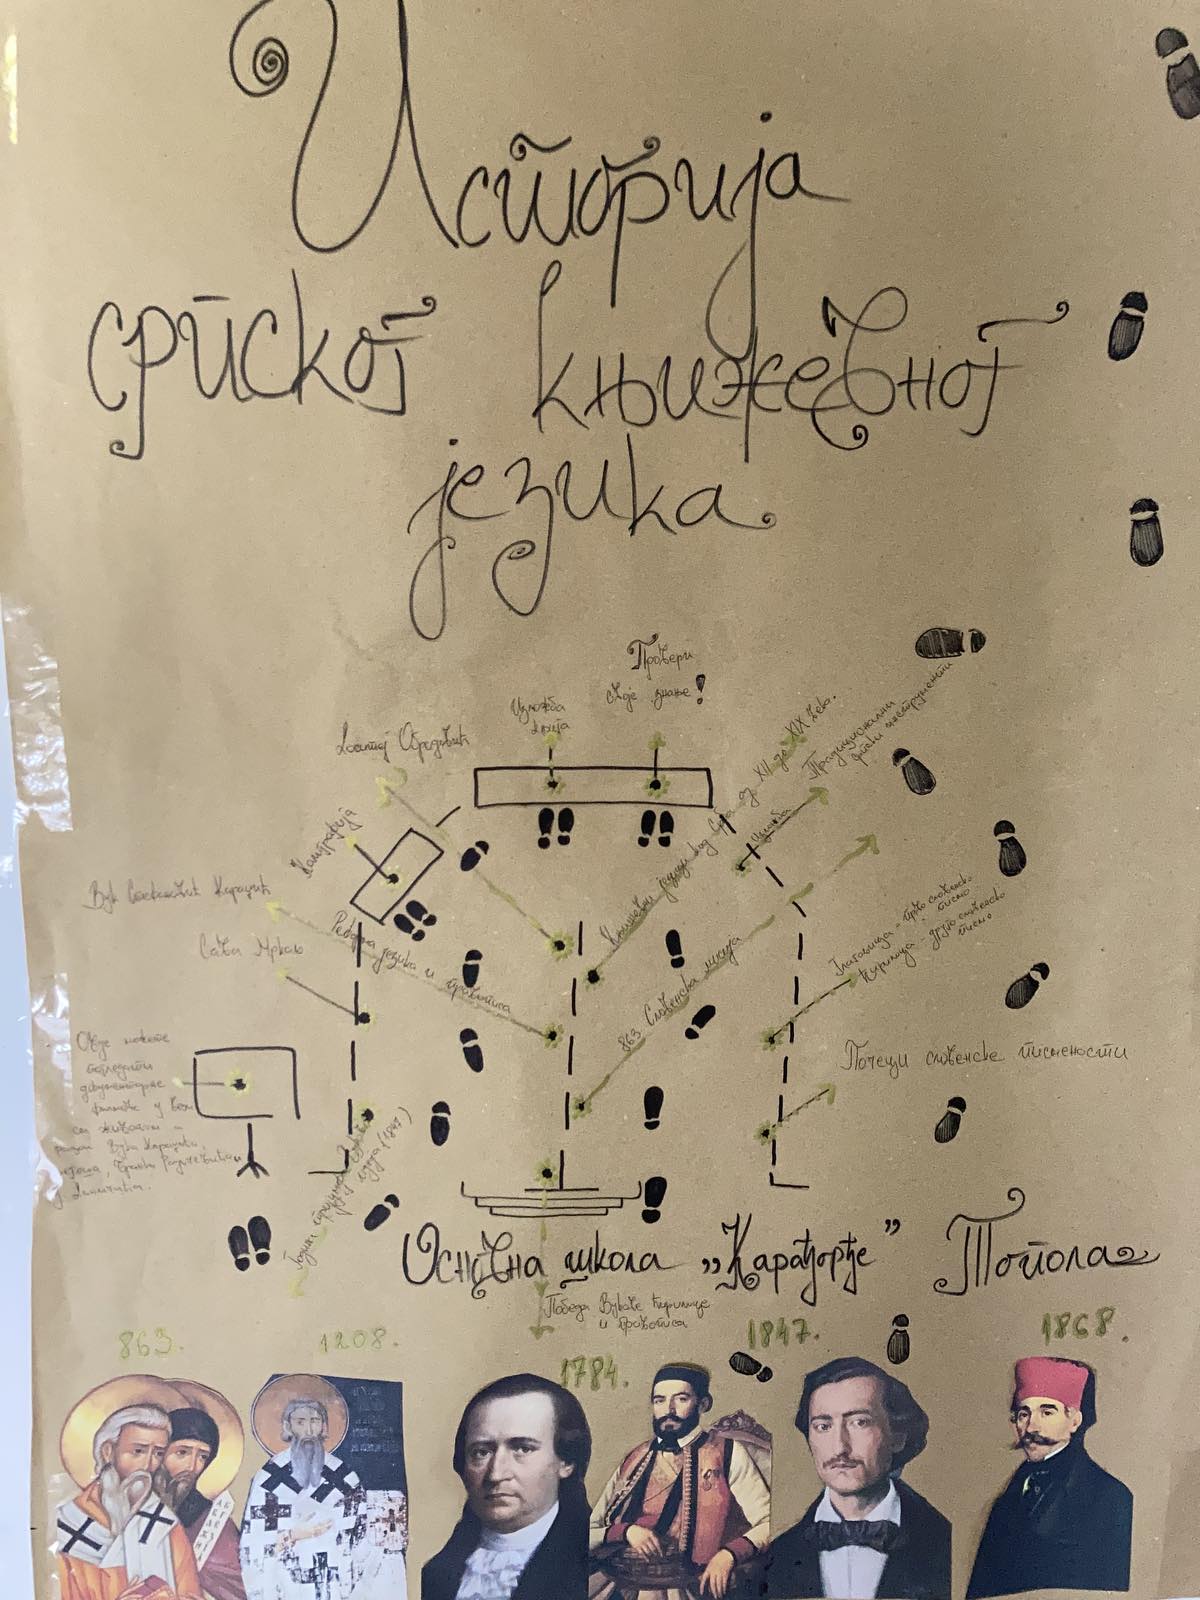 Историја
српског књижевног
језика
Провери
своје знање!
Изложба
књига
Доситеј Обрадовић
Калиграфија
Вук Стефановић Караџић
Сава Мркаљ
Реформа језика и правописа
Књижевни језици код Срба од XII до XIX века.
Изложба
Традиционални
863 Словенска мисија
Глаголица - прво словенско
писмо
Ћирилица - друго словенско
писмо
Почеци словенске писмености
Овде можете
погледати
документарне
филмове у вези
са животом и
радом Вука Караџића,
Његоша, Бранка Радичевића
и Даничића.
Година преломне Вукове
(1847)
Основна школа „Карађорђе” Топола
Победа Вукове ћирилице
и правописа
863.
1208.
1784.
1847.
1868.